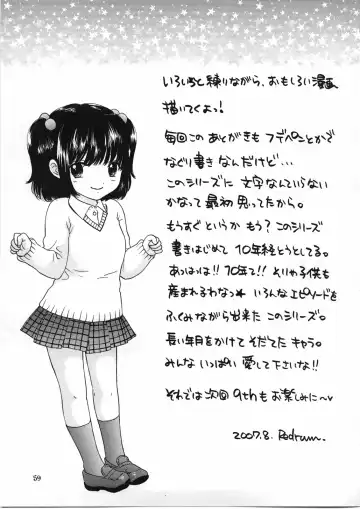 いろいろと練りながら、おもしろい漫画
描いてくよっ!
毎回この あとがきも フデペンとかで
なぐり書き なんだけど…
このシリーズに 文字なんていらない
かなって 最初 思ってたから。
もうすぐ というか もう? このシリーズ
書きはじめて 10年経とうとしてる。
あっはっは!! 10年て!! そりゃ子供も
産まれるわなっ★ いろんなエピソードを
ふくみながら出来た このシリーズ。
長い年月をかけて そだてた キャラ。
みんな いっぱい 愛して下さいな!!
それでは次回 9thも お楽しみに〜♥
2007.8. Redrum.
59